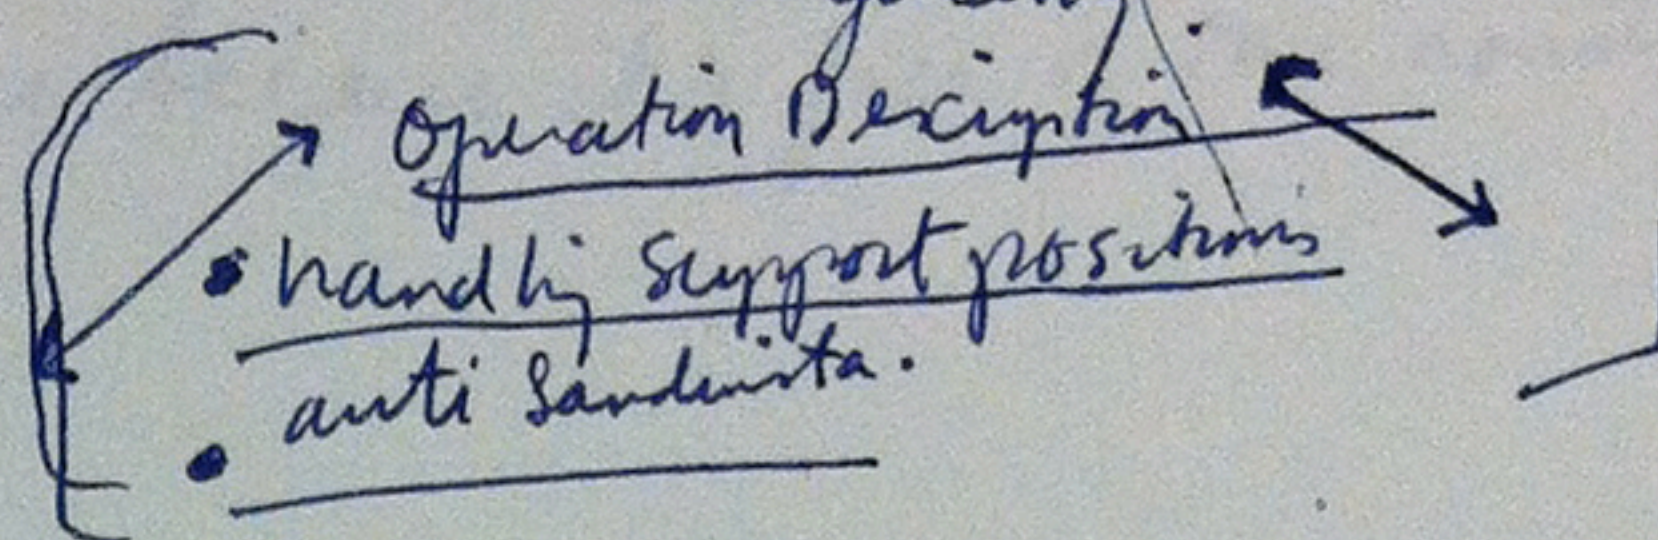 Operation Description
• handling support positions
anti Sandinista.
•